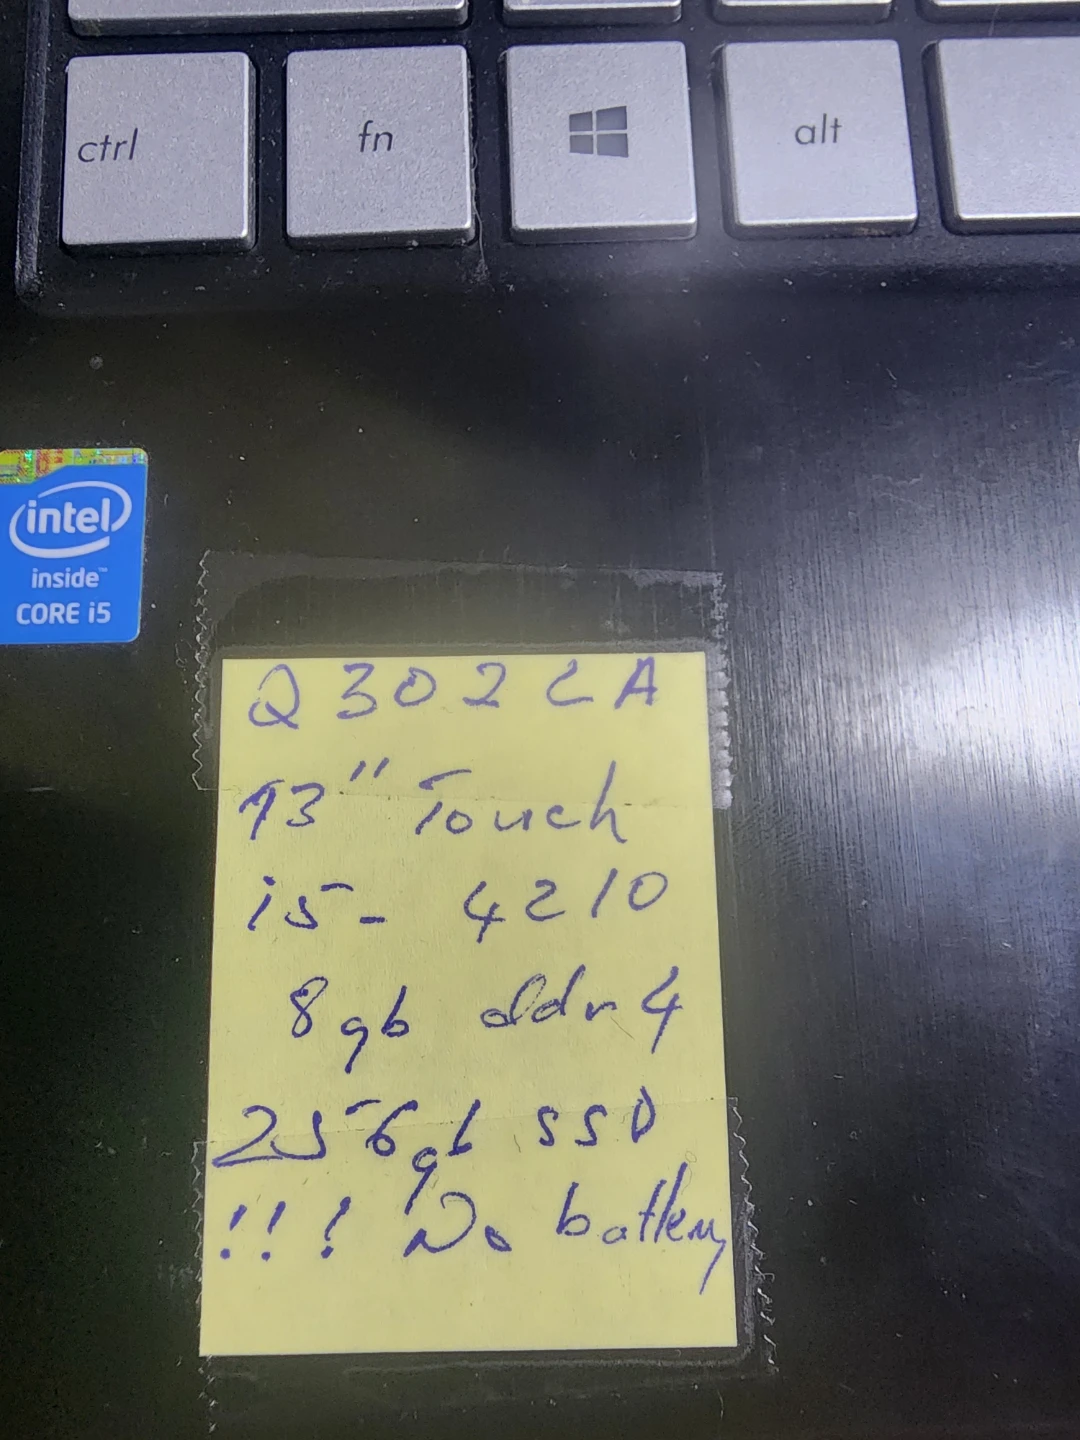 ctrl fn alt
intel
inside™
CORE i5
Q302LA
13" Touch
i5- 4210
8gb ddr4
256gb SSD
!!! No battery